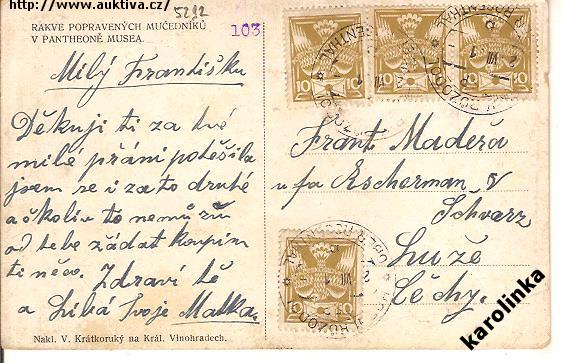 http://www.auktiva.cz/
5292
RAKVE POPRAVENÝCH MUČEDNÍKŮ
V PANTHEONĚ MUSEA.
103
Milý Františku
Děkuji ti za tvé
milé přání potěšila
jsem se i za to druhé
a ačkoliv to nemůžu
od tebe žádat koupim
ti něco. Zdraví tě
a líbá Tvoje Matka.
Nakl. V. Krátkoruký na Král. Vinohradech.
10 10 10 10 10 10
Frant. Maděra
u fa Escherman &
Schvarz
Luže
Čechy.
10 10
karolinka